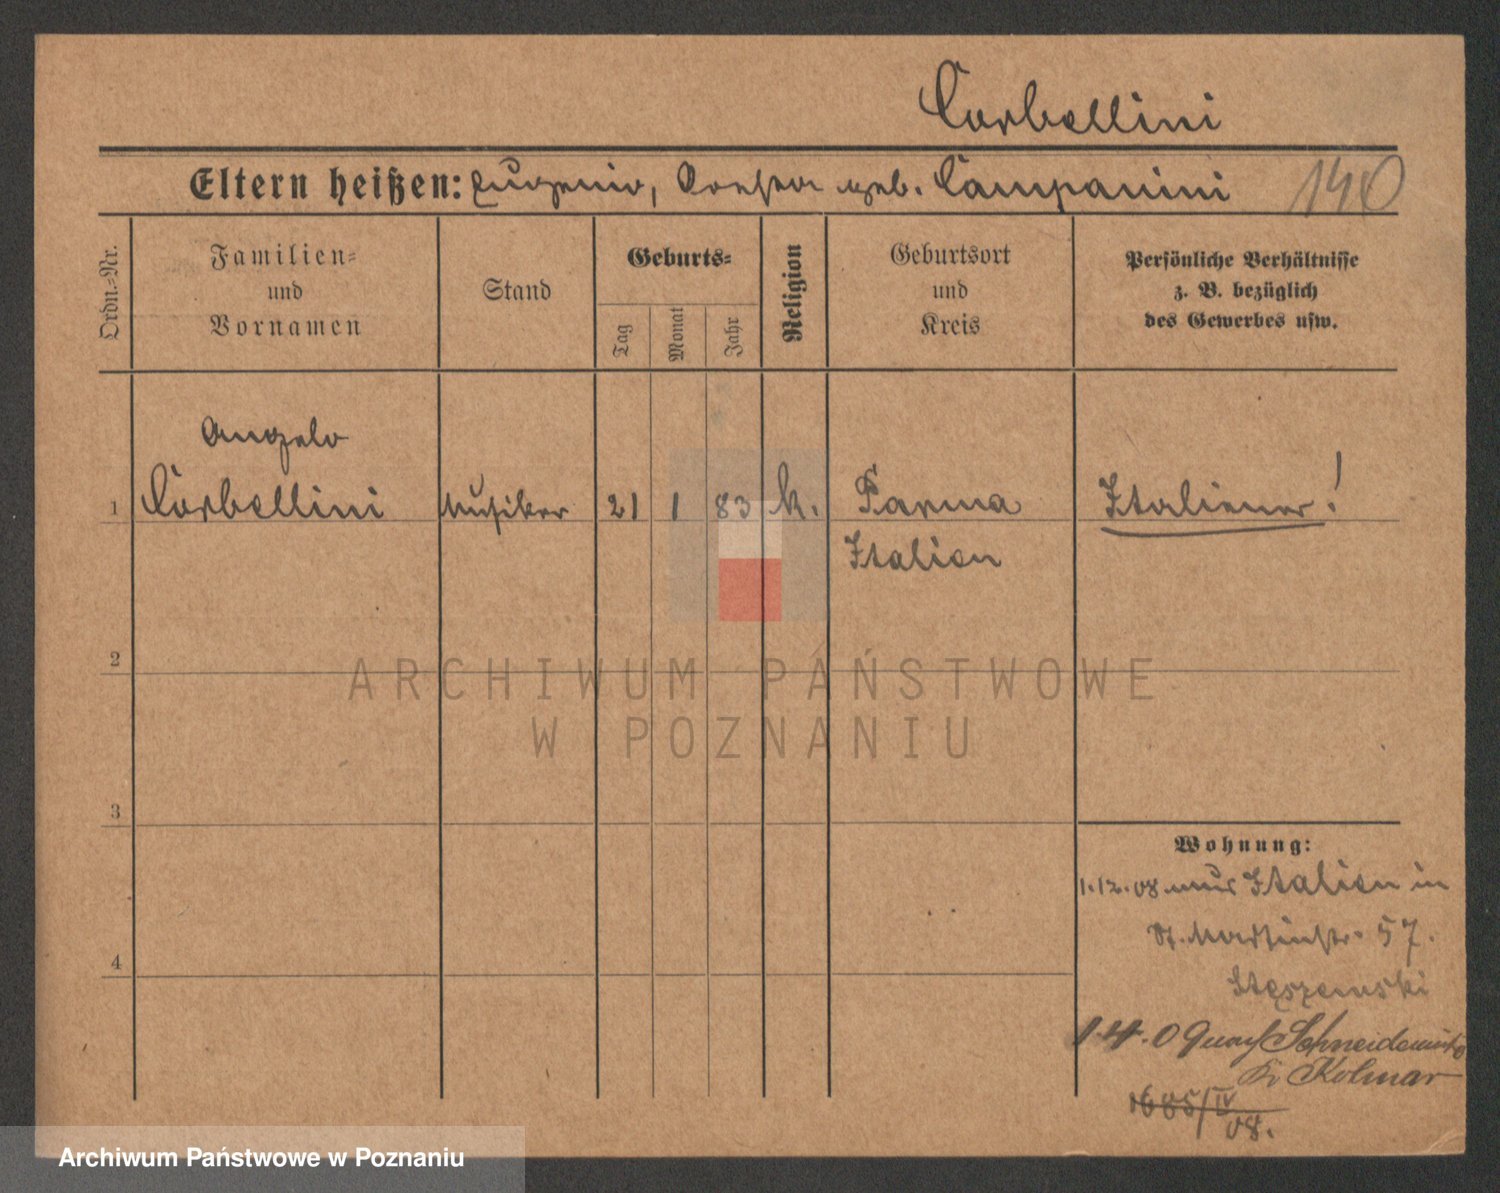 Corbellini
Eltern heißen: Eugenio, geb. Campanini
140
Ordn.-Nr.
Familien-
und
Vornamen
Stand
Geburts-
Tag
Monat
Jahr
Religion
Geburtsort
und
Kreis
Persönliche Verhältnisse
z. B. bezüglich
des Gewerbes usw.
Angelo
1 Corbellini Musiker 21 1 83 k. Parma Italiener!
Italien
2
ARCHIWUM PAŃSTWOWE
W POZNANIU
3
Wohnung:
1.12.08 aus Italien in
St. Martinstr. 57.
4
1.4.09 nach Schneidemühl
Kr Kolmar
08.
Archiwum Państwowe w Poznaniu